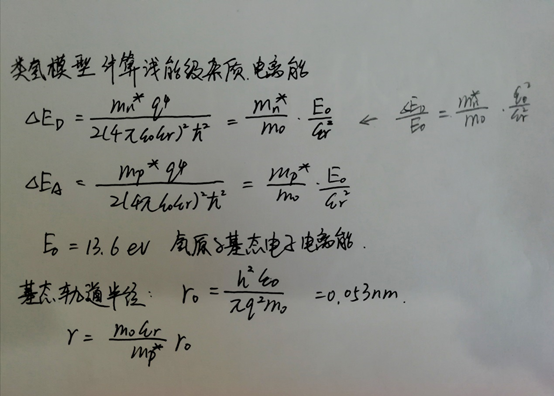 类氢模型计算浅能级杂质电离能
ΔE_D = m_n* q⁴ / 2(4πε₀ε_r)²ħ² = m_n*/m₀ · E₀/ε_r² ← ΔE_D/E₀ = m_n*/m₀ · ε₀²/ε_r²
ΔE_A = m_p* q⁴ / 2(4πε₀ε_r)²ħ² = m_p*/m₀ · E₀/ε_r²
E₀ = 13.6 eV 氢原子基态电子电离能.
基态轨道半径: r₀ = h²ε₀ / πq²m₀ = 0.053nm.
r = m₀ε_r / m_p* r₀